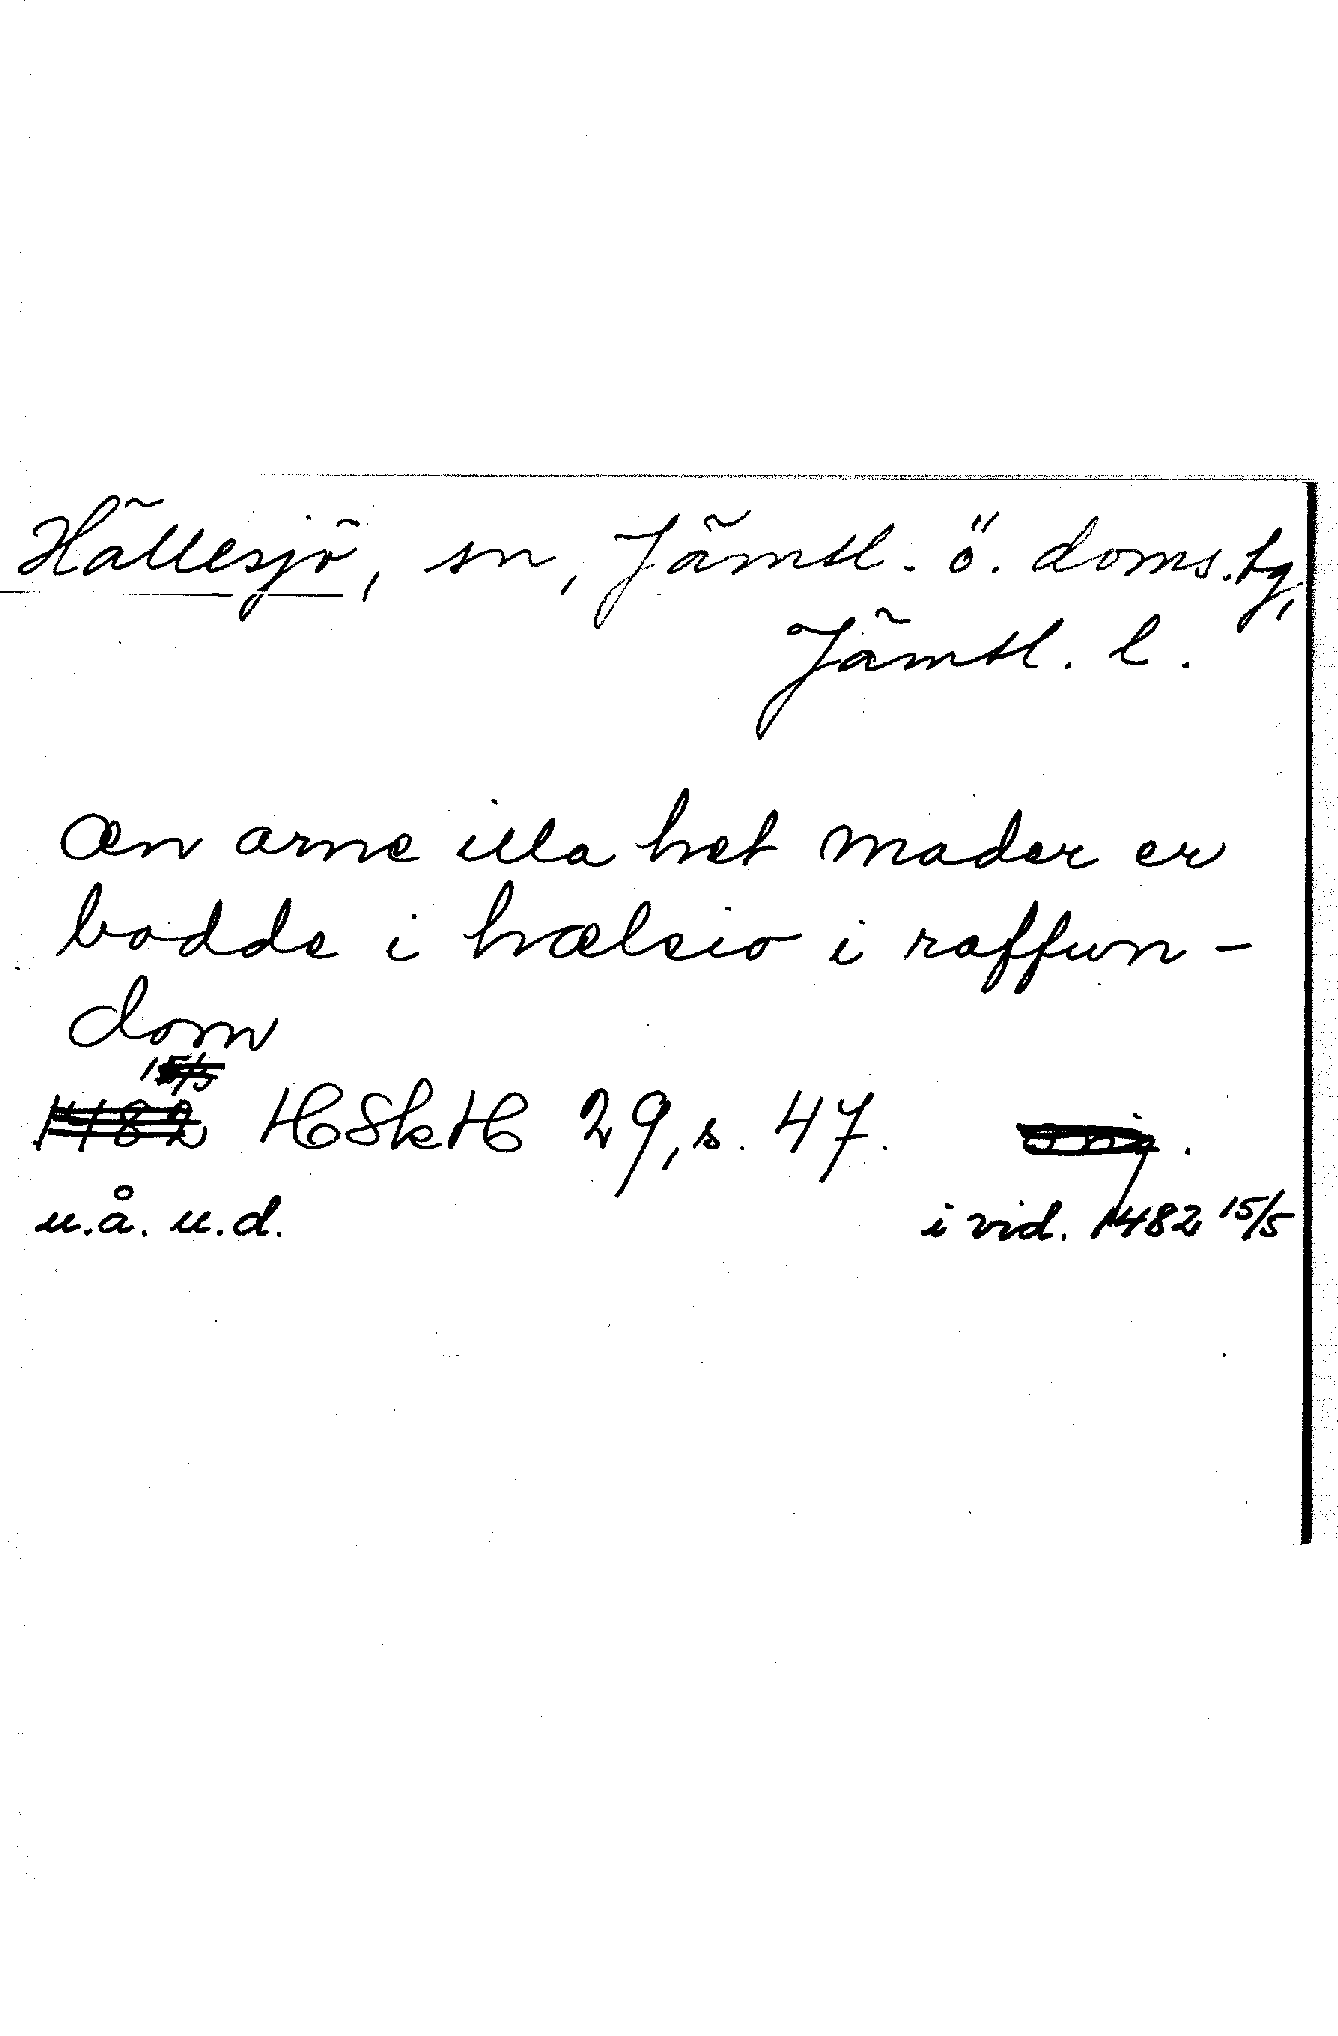 Hällesjö, sn, Jämtl. ö. doms. tg,
Jämtl. l.
æn arne illa het mader er
bodde i hælsio i raffwn-
dom
15/5
1482 HSkH 29, s. 47. orig.
u.å. u.d. i vid. 1482 15/5